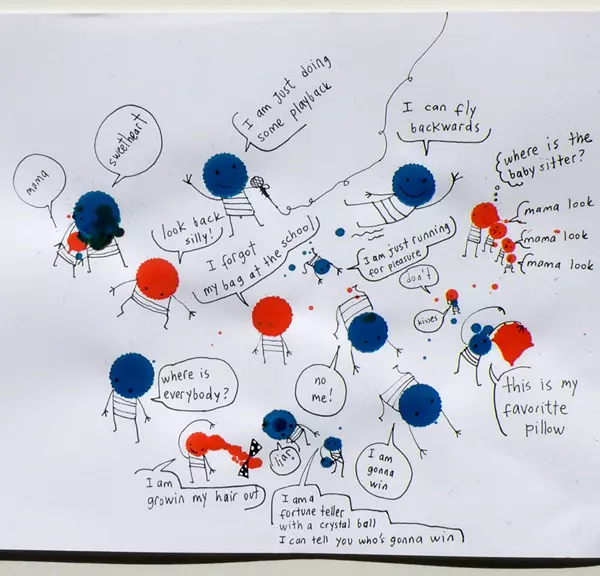 I am just doing
some playback
I can fly
backwards
sweetheart
moma
where is the
baby sitter?
mama look
mama look
mama look
look back
silly!
I forgot
my bag at the school
I am just running
for pleasure
don't
kisses
where is
everybody?
no
me!
this is my
favoritte
pillow
I am
gonna
win
liar
I am
growin my hair out
I am a
fortune teller
with a crystal ball
I can tell you who's gonna win